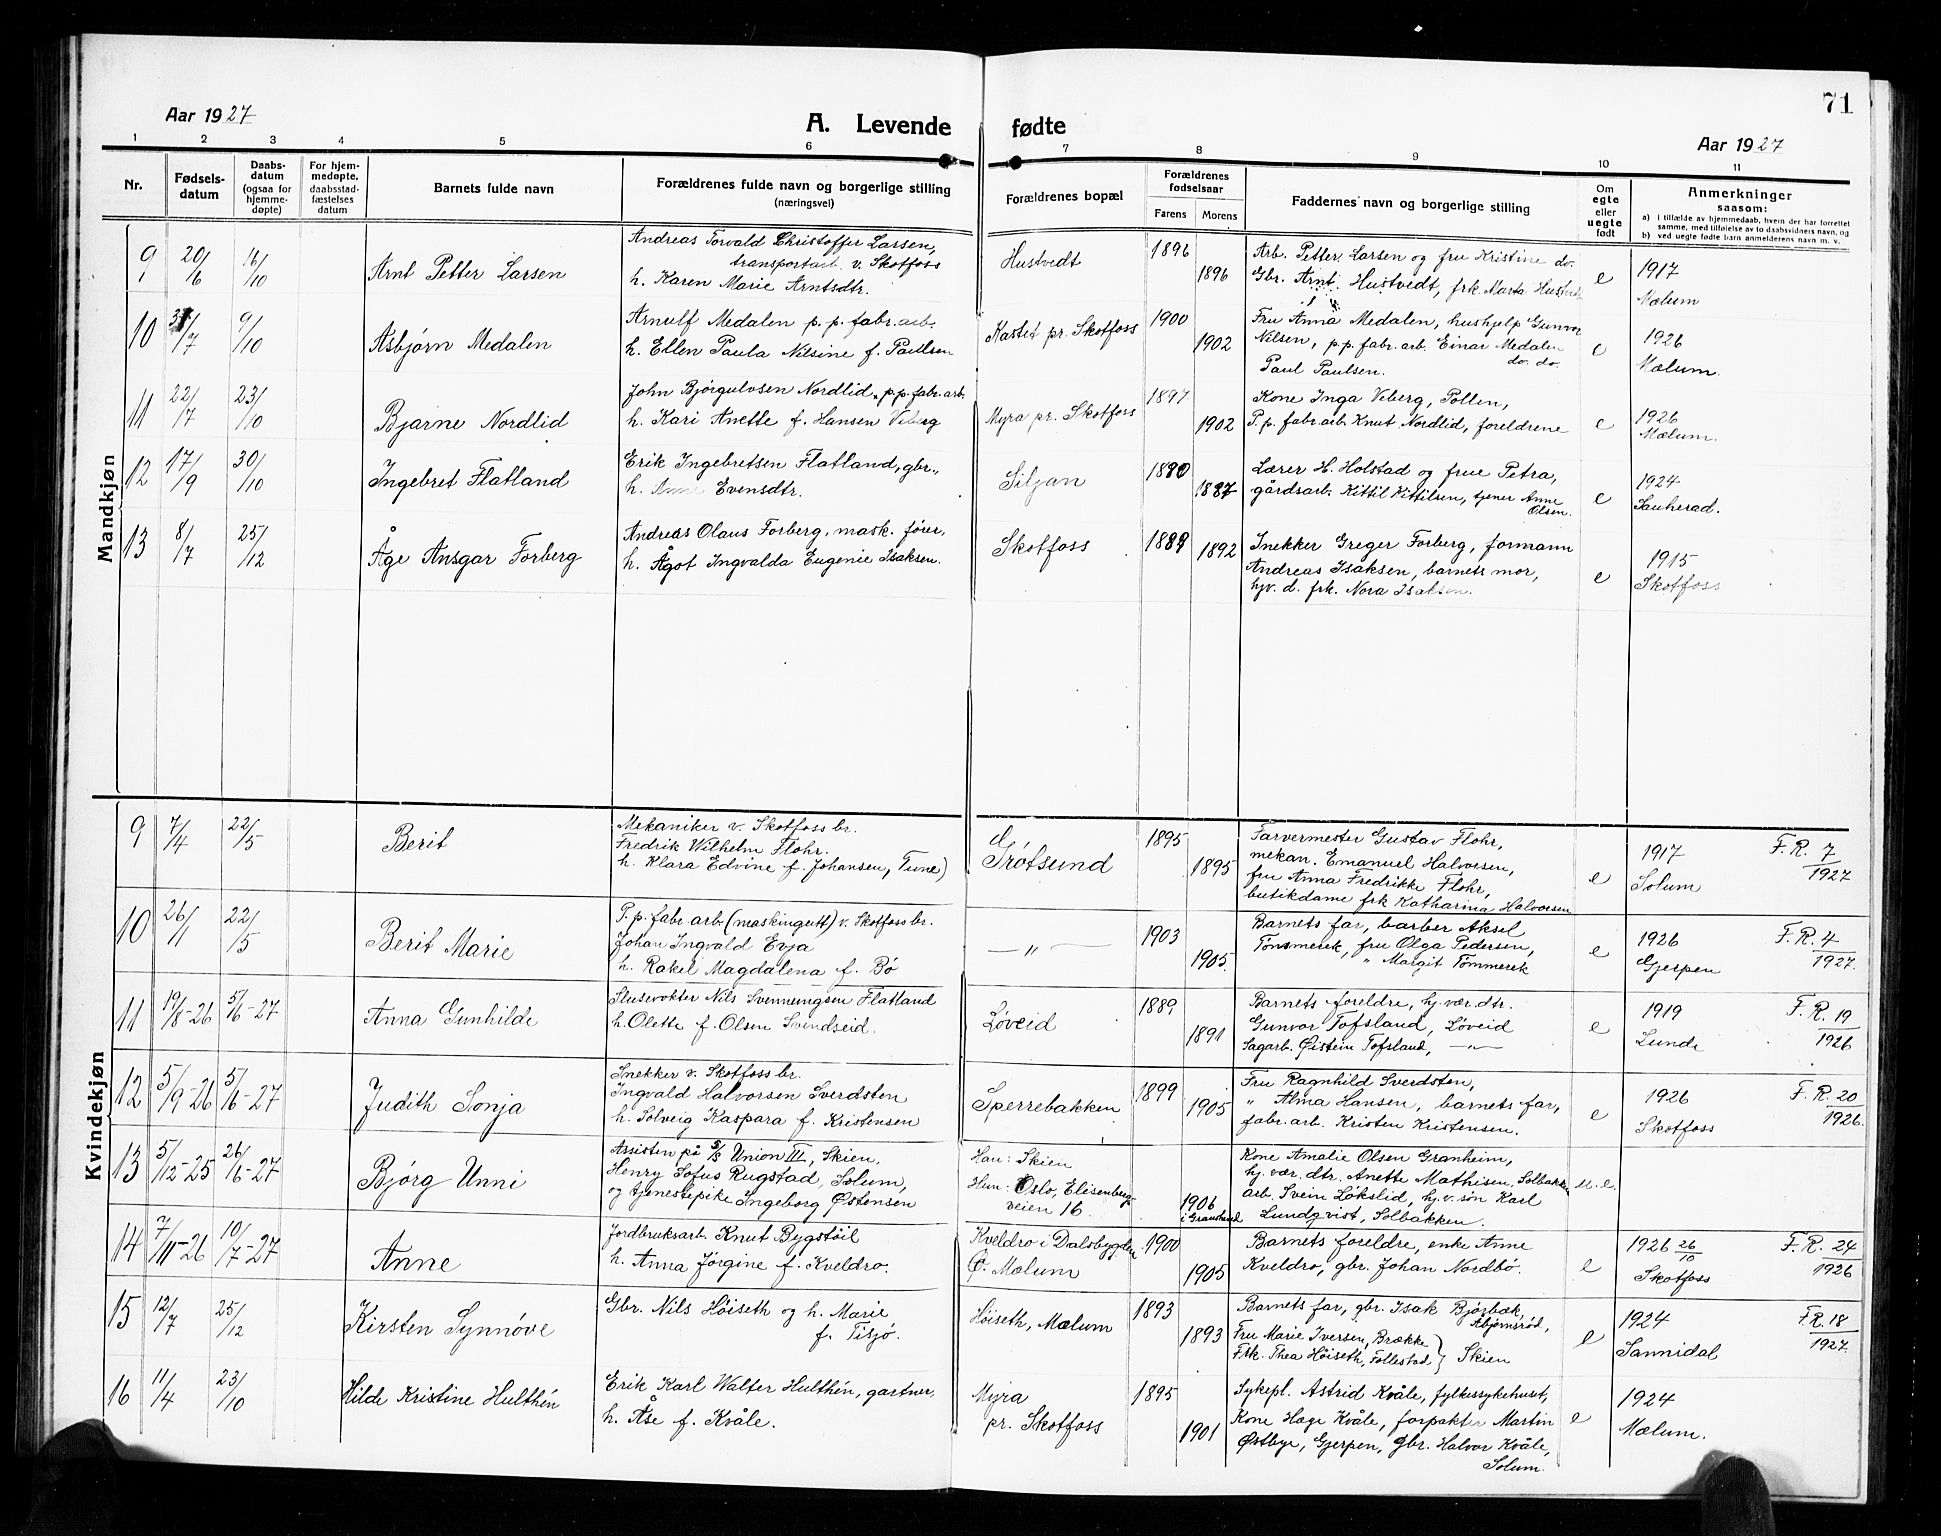 71
Aar 1927
A. Levende fødte
Aar 1927
1 2 3 4 5 6 7 8 9 10 11
Nr.
Fødsels-
datum
Daabs-
datum
(ogsaa for
hjemme-
døpte)
For hjem-
medøpte,
daabsstad-
fæstelses
datum
Barnets fulde navn
Forældrenes fulde navn og borgerlige stilling
(næringsvei)
Forældrenes bopæl
Forældrenes
fødselsaar
Farens Morens
Faddernes navn og borgerlige stilling
Om
egte
eller
uegte
født
Anmerkninger
saasom:
a) i tilfælde av hjemmedaab, hvem der har forrettet
samme, med tilføielse av to daabsvidners navn, og
b) ved uegte fødte barn anmelderens navn m. v.
Mandkjøn
9 20/6 16/10 Arnt Petter Larsen
Andreas Torvald Christoffer Larsen,
transportarb. v. Skotfoss
h. Karen Marie Arntsdtr.
Hustvedt 1896 1896
Arb. Petter Larsen og fru Kristine do.
Gbr. Arnt Hustvedt, frk. Marta Hustvedt
e 1917
Mælum
10 /7 9/10 Asbjørn Medalen
Arnulf Medalen p. p. fabr. arb.
h. Ellen Paula Nilsine f. Paulsen
Kastet pr. Skotfoss 1900 1902
Fru Anna Medalen, hushjelp Gunvor
Nilsen, p.p. fabr. arb. Einar Medalen
do. do.
Paul Paulsen.
e 1926
Mælum.
11 22/7 23/10 Bjarne Nordlid
John Bjørgulvsen Nordlid, p.p. fabr. arb.
h. Kari Anette f. Hansen Viberg
Myra pr. Skotfoss 1897 1902
Kone Inga Viberg, Pollen,
P. p. fabr. arb. Knut Nordlid, foreldrene
e 1926
Mælum.
12 17/9 30/10 Ingebret Flatland
Erik Ingebretsen Flatland, gbr.,
h. Anne Evensdtr.
Siljan 1880 1887
Lærer H. Holstad og frue Petra,
gårdsarb. Kittil Kittilsen, tjener Anne
Olsen.
e 1924
Sauherad.
13 8/7 25/12 Åge Ansgar Forberg
Andreas Olaus Forberg, mask. fører,
h. Ågot Ingvalda Eugenie Isaksen.
Skotfoss 1889 1892
Snekker Greger Forberg, formann
Andreas Isaksen, barnets mor,
hjv. d. frk. Nora Isaksen.
e 1915
Skotfoss
Kvindekjøn
9 7/4 22/5 Berit
Mekaniker v. Skotfoss br.
Fredrik Wilhelm Flohr.
h. Klara Edvine f. Johansen, Tune)
Grøtsund 1895 1895
Farvermester Gustav Flohr,
mekan. Emanuel Halvorsen,
fru Anna Fredrikke Flohr,
butikdame frk Katharina Halvorsen
e 1917
Solum
F. R. 7/1927
10 26/1 22/5 Berit Marie
P. p. fabr. arb. (maskingutt) v. Skotfoss br.
Johan Ingvald Evja
h. Rakel Magdalena f. Bø
— " — 1903 1905.
Barnets far, barber Aksel
Tømmerek, fru Olga Pedersen,
" Margit Tømmerek
e 1926
Gjerpen
F. R. 4/1927.
11 19/8-26 5/6-27 Anna Gunhilde
Slusevokter Nils Svennungsen Flatland
h. Olette f. Olsen Svindseid.
Løveid 1889 1891
Barnets foreldre, hj. vær. dtr.
Gunvor Tofsland, Løveid
Sagarb. Øistein Tofsland, — " —
e 1919
Lunde
F. R. 19/1926
12 5/9-26 5/6-27 Judith Sonja
Snekker v. Skotfoss br.
Ingvald Halvorsen Sverdsten
h. Solveig Kaspara f. Kristensen
Sperrebakken 1899 1905
Fru Ragnhild Sverdsten,
" Alma Hansen, barnets far,
fabr. arb. Kristen Kristensen.
e 1926
Skotfoss
F. R. 20/1926.
13 5/12-25 26/6-27 Bjørg Unni
Assisten på S/S Union III, Skien,
Henry Sofus Rugstad, Solum,
og tjenestepike Ingeborg Østensen
Han: Skien
Hun: Oslo, Elisenberg-
veien 16.
1906
Kone Amalie Olsen Granheim,
hj. vær. dtr. Anette Mathisen, Solbakken
arb. Svein Løkslid, hj. v. søn Karl
Lundqvist, Solbakken.
u. e.
14 7/11-26 10/7-27 Anne
Jordbruksarb. Knut Bygstøil
h. Anna Jørgine f. Kveldro.
Kveldro i Dalsbygden
Ø. Mælum 1900 1905
Barnets foreldre, enke Anne
Kveldro, gbr. Johan Nordbø.
e 1926 26/10
Skotfoss
F. R. 24/1926
15 12/7 25/12 Kirsten Synnøve
Gbr. Nils Høiseth og h. Marie
f. Tisjø.
Høiseth, Mælum 1893 1893
Barnets far, gbr. Isak Bjørbæk,
Åbjømsrød,
Fru Marie Iversen, Brække
Frk. Thea Høiseth, Follestad } Skien
e 1924
Sannidal
F.R. 18/1927.
16 11/4 23/10 Hilde Kristine Hulthén
Erik Karl Walter Hulthén, gartner.
h. Åse f. Kvåle.
Myra
pr. Skotfoss 1895 1901
Sykepl. Astrid Kvåle, fylkessykehuset,
Kone Hæge Kvåle, forpakter Martin
Østbye, Gjerpen, gbr. Halvor Kvåle,
Solum.
e 1924
Mælum.